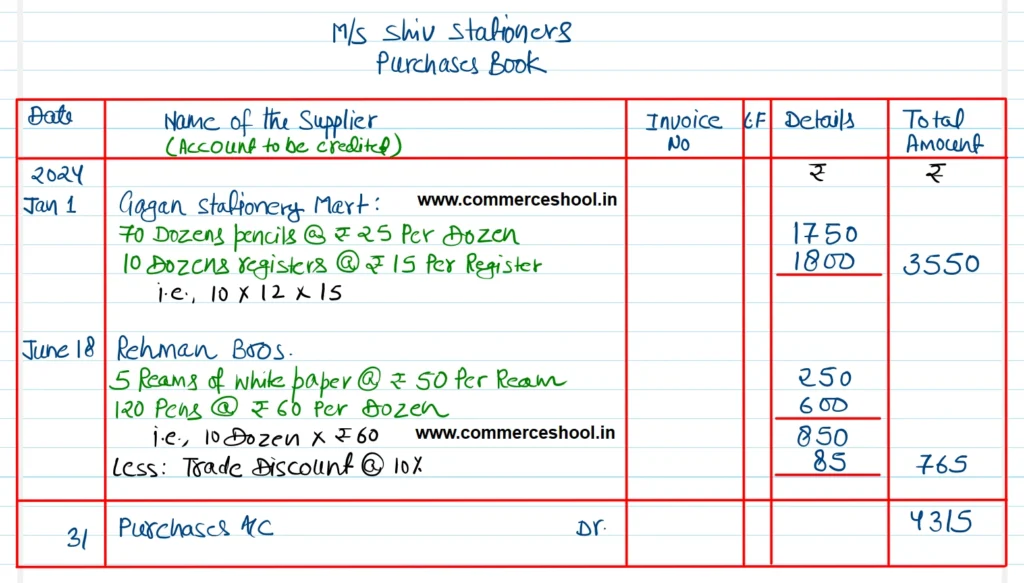 M/s Shiv Stationers
Purchases Book
Date Name of the Supplier Invoice L.F Details Total
(Account to be credited) No Amount
2024 ₹ ₹
Jan 1 Gagan Stationery Mart: www.commerceshool.in
70 Dozens pencils @ ₹ 25 Per Dozen 1750
10 Dozens registers @ ₹ 15 Per Register 1800 3550
i.e., 10 x 12 x 15
June 18 Rehman Bros.
5 Reams of white paper @ ₹ 50 Per Ream 250
120 Pens @ ₹ 60 Per Dozen 600
i.e., 10 Dozen x ₹ 60 www.commerceshool.in 850
Less: Trade Discount @ 10% 85 765
31 Purchases A/C Dr. 4315